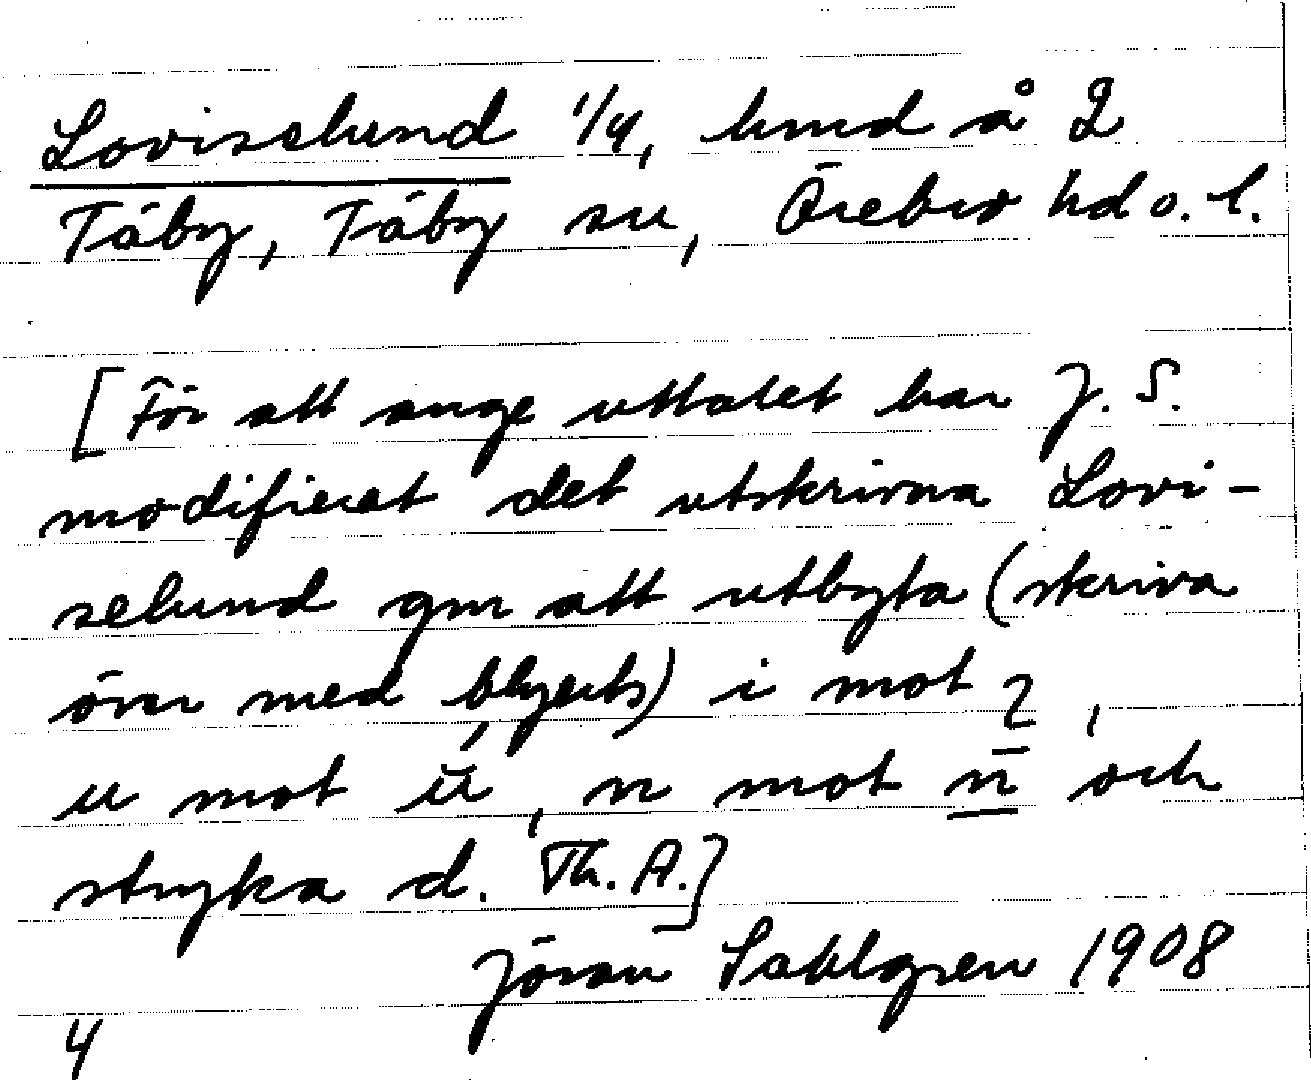 Loviselund 1/4, hmd å 2
Täby, Täby sn, Örebro hd o. l.
[För att ange uttalet har J. S.
modifierat det utskrivna Lovi-
selund gm att utbyta (skriva
över med blyerts) i mot ꝛ,
u mot ŭ́, n mot n̲̄ och
stryka d. Th. A.]
Jöran Sahlgren 1908
4